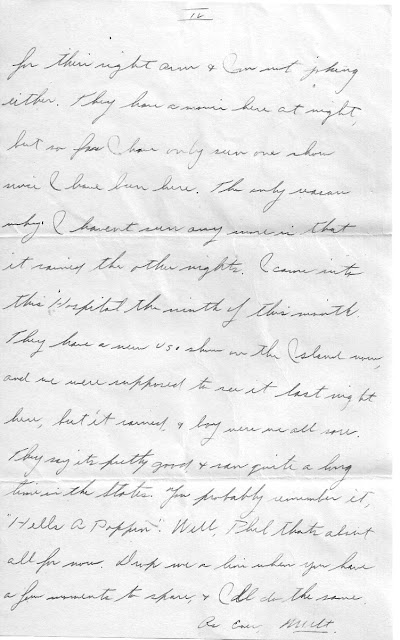 IV
for their right arm & I'm not joking
either. They have a movie here at night,
but so far I have only seen one show
since I have been here. The only reason
why I havent seen any more is that
it rained the other nights. I came into
this Hospital the ninth of this month.
They have a new USO show on the Island now,
and we were supposed to see it last night
here, but it rained, & boy were we all sore.
They say its pretty good & ran quite a long
time in the States. You probably remember it,
"Hells A Poppin". Well, Phil thats about
all for now. Drop me a line when you have
a few moments to spare, & I'll do the same.
As Ever Milt.